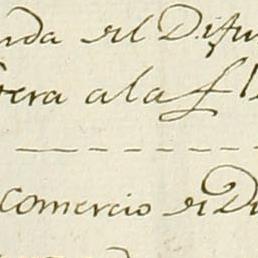 nda del Difu
era a la f
Comercio de D